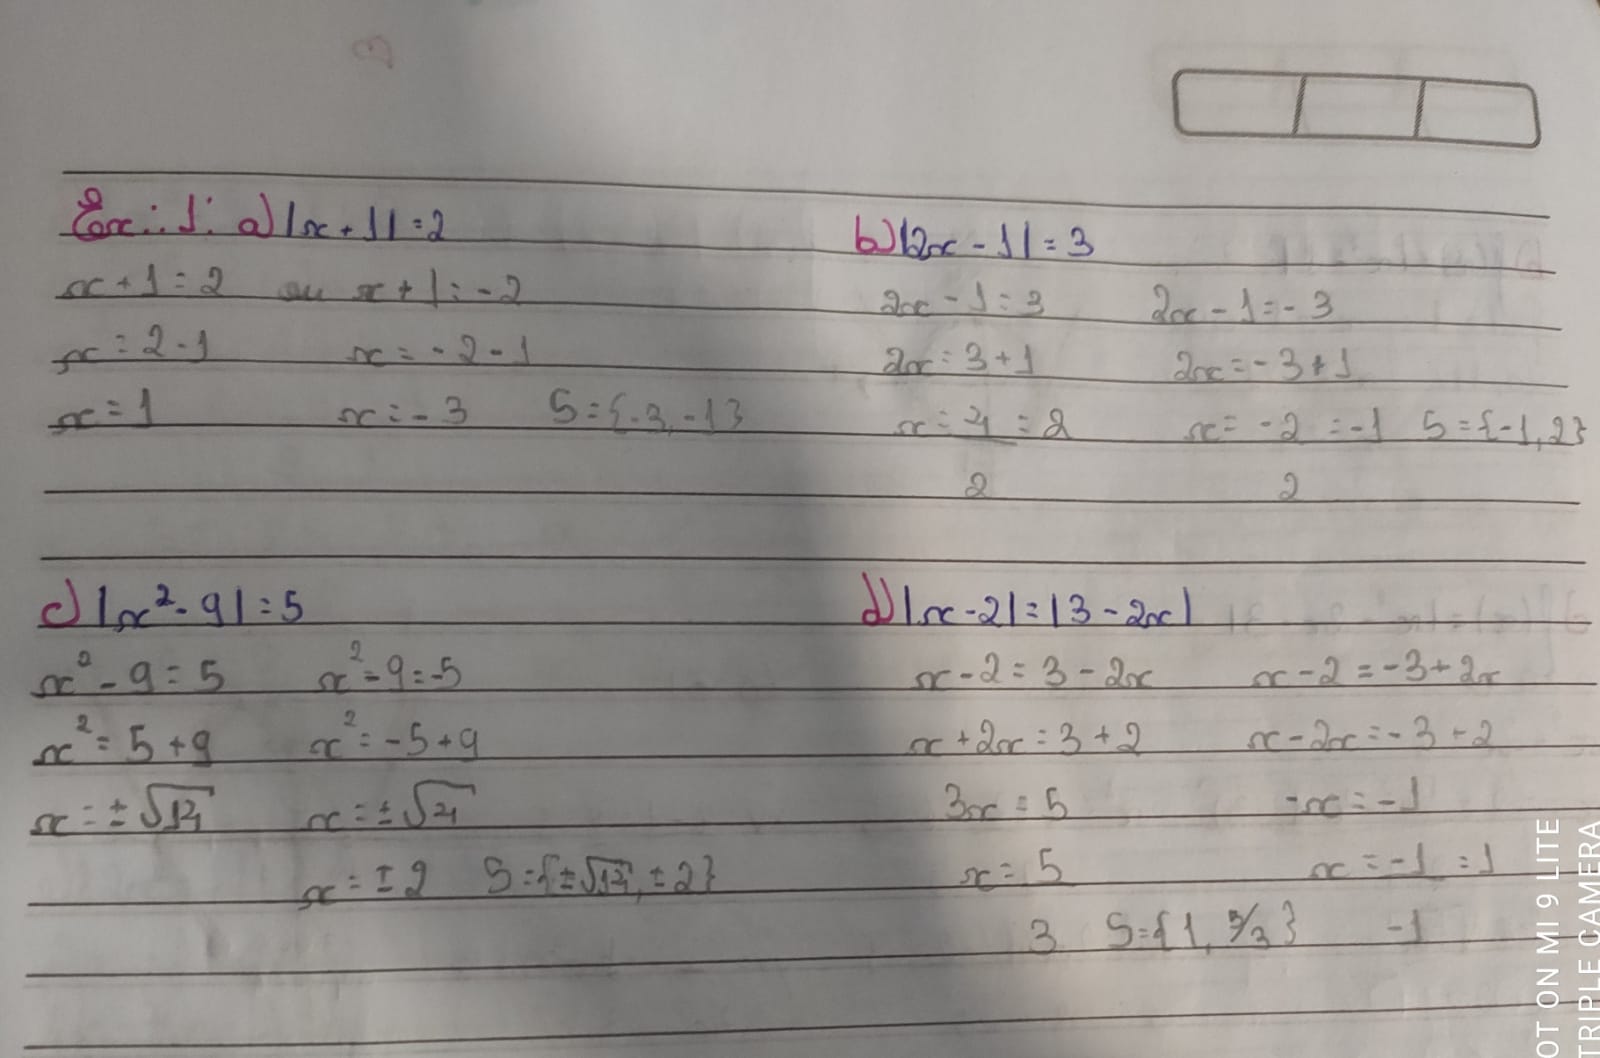 Ex: 1: a) |x + 1| = 2
x + 1 = 2 ou x + 1 = -2
x = 2 - 1 x = -2 - 1
x = 1 x = -3 S = {-3, -1}
b) |2x - 1| = 3
2x - 1 = 3 2x - 1 = -3
2x = 3 + 1 2x = -3 + 1
x = 4 = 2 x = -2 = -1 S = {-1, 2}
2 2
c) |x² - 9| = 5
x² - 9 = 5 x² - 9 = -5
x² = 5 + 9 x² = -5 + 9
x = ±√14 x = ±√4
x = ±2 S = {±√14, ±2}
d) |x - 2| = |3 - 2x|
x - 2 = 3 - 2x x - 2 = -3 + 2x
x + 2x = 3 + 2 x - 2x = -3 + 2
3x = 5 -x = -1
x = 5 x = -1 = 1
3 S = {1, 5/3} -1
OT ON MI 9 LITE
TRIPLE CAMERA